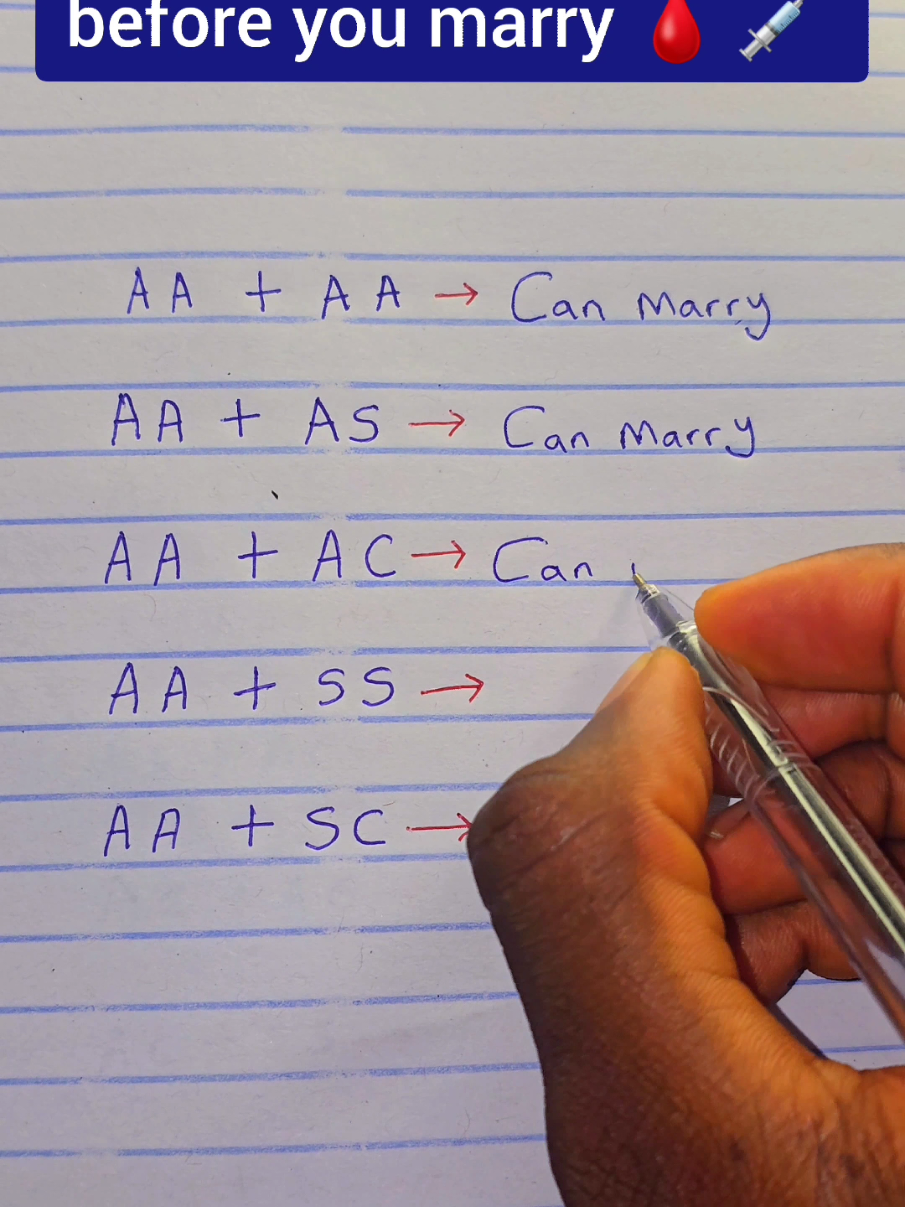 before you marry 🩸 💉
AA + AA → Can Marry
AA + AS → Can Marry
AA + AC → Can
AA + SS →
AA + SC →